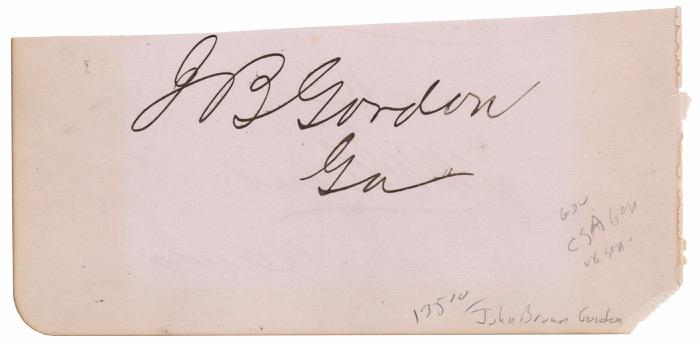 J B Gordon
Ga
Gov
CSA Gen
US Sen-
135 00 / John Brown Gordon